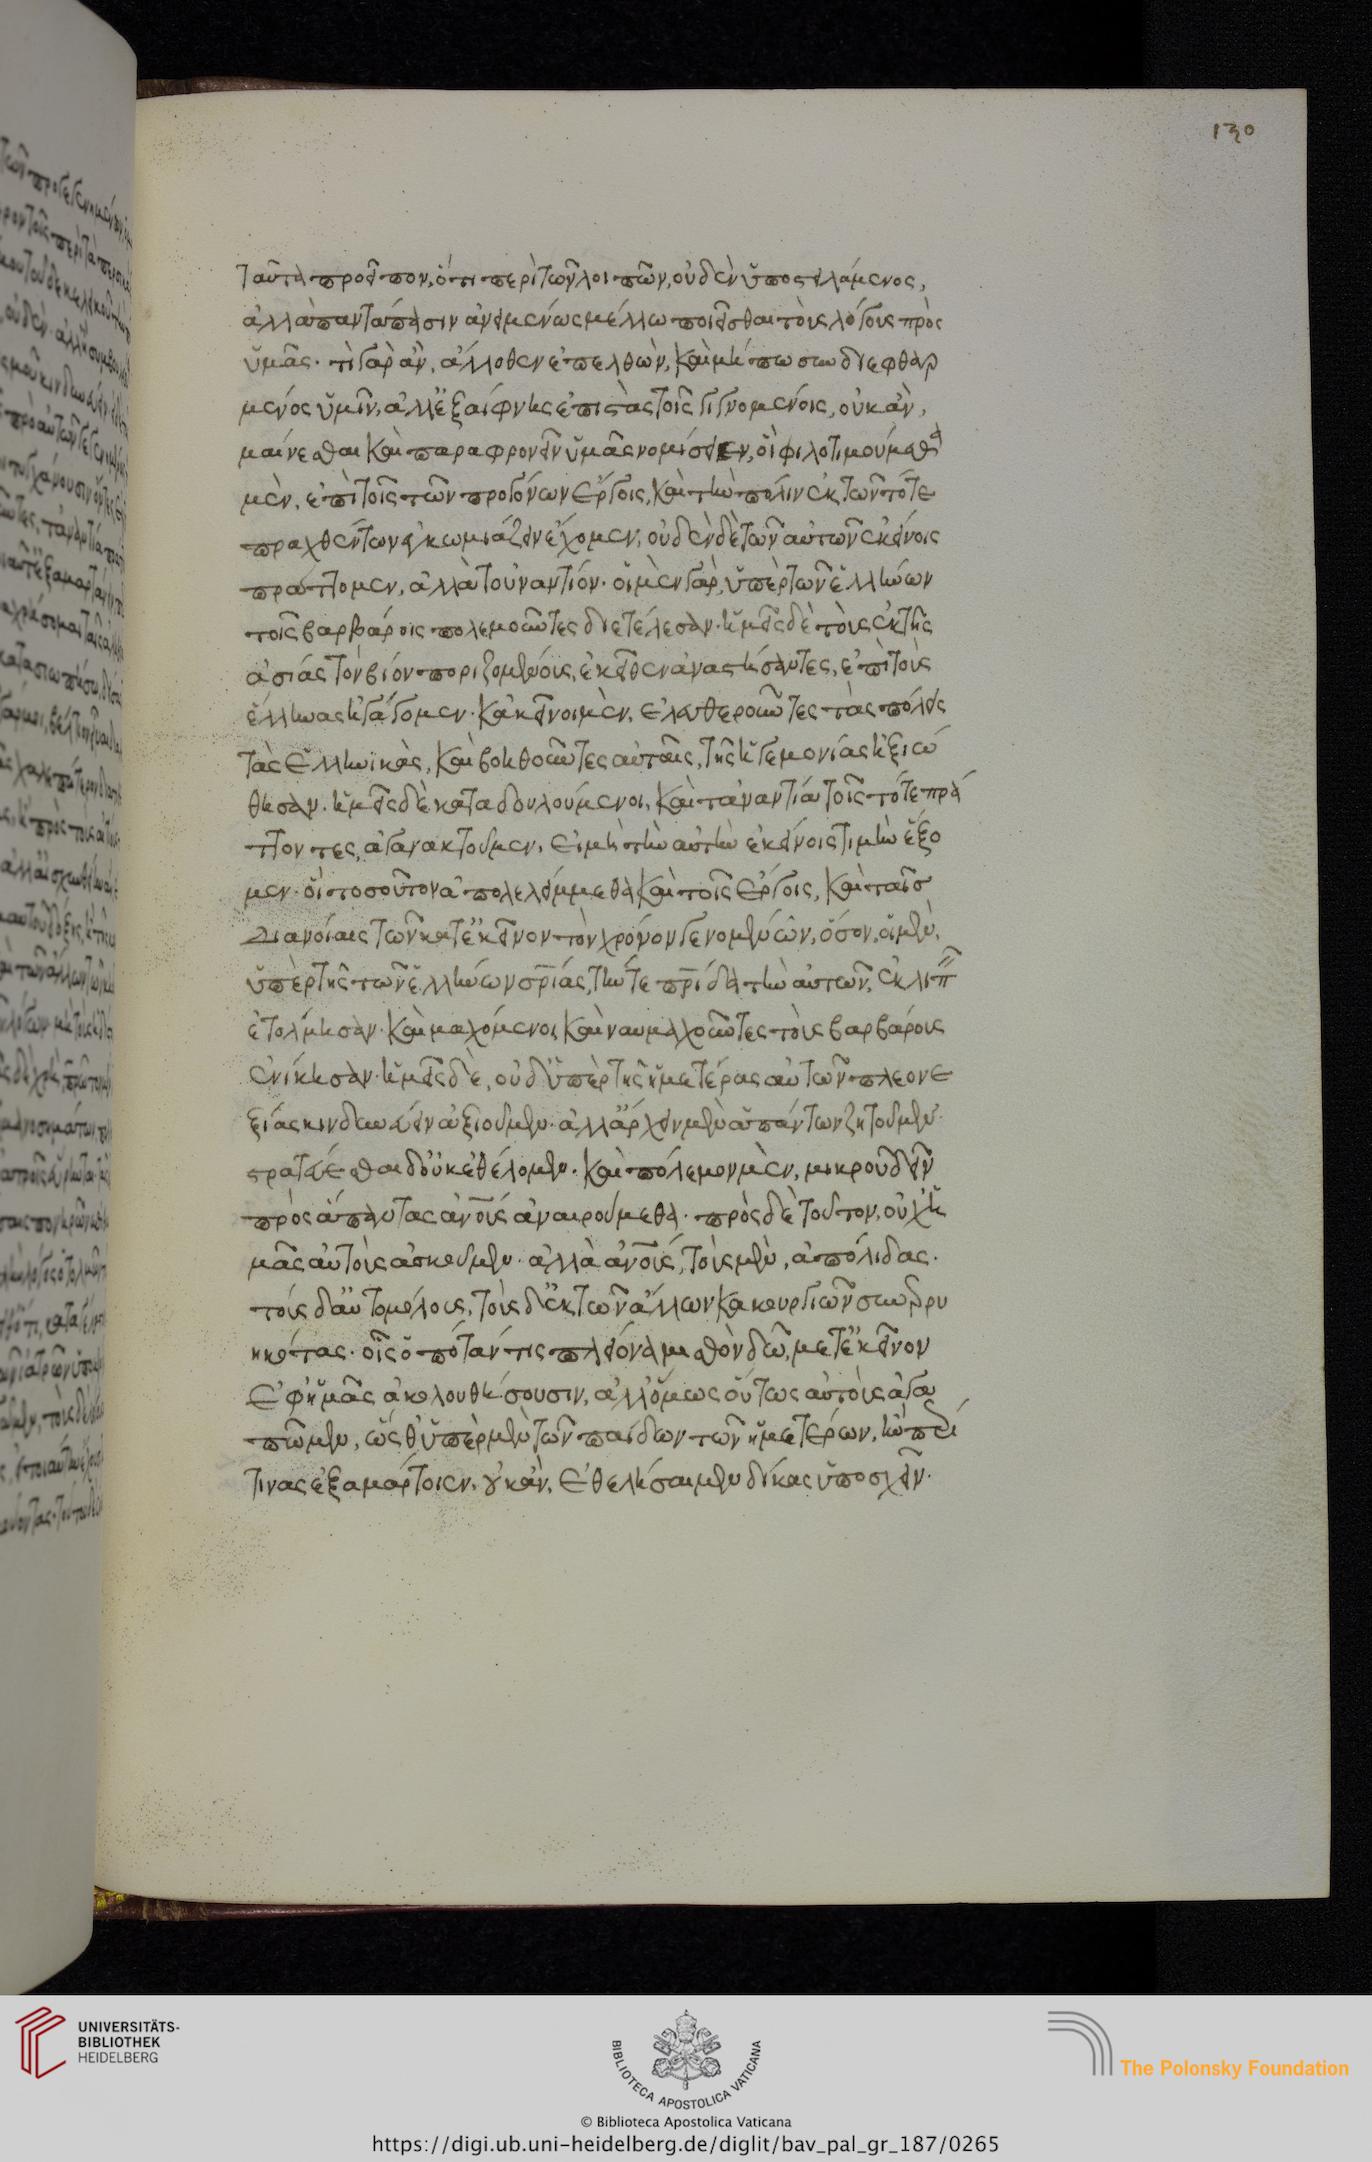 130
ταῦτα προεῖπον, ὅτι περὶ τῶν λοιπῶν, οὐδὲν ὑποστειλάμενος,
ἀλλὰ παντάπασιν ἀνειμένως μέλλω ποιεῖσθαι τοὺς λόγους πρὸς
ὑμᾶς. τὶ γὰρ ἂν, ἄλλοθεν ἐπελθὼν, καὶ μήπω συνδιεφθαρ
μένος ὑμῖν, ἀλλ' ἐξαίφνης ἐπιστὰς τοῖς γιγνομένοις, οὐκ ἂν,
μαίνεσθαι καὶ παραφρονεῖν ὑμᾶς νομίσειεν, οἳ φιλοτιμούμεθα
μὲν, ἐπὶ τοῖς τῶν προγόνων ἔργοις, καὶ τὴν πόλιν ἐκ τῶν τότε
πραχθέντων ἐγκωμιάζειν ἔχομεν, οὐδὲν δὲ τῶν αὐτῶν ἐκείνοις
πράττομεν, ἀλλὰ τοὐναντίον. οἱ μὲν γὰρ, ὑπὲρ τῶν ἑλλήνων
τοῖς βαρβάροις πολεμοῦντες διετέλεσαν. ἡμεῖς δὲ τοὺς ἐκ τῆς
ἀσίας τὸν βίον ποριζομένους, ἐκεῖθεν ἀναστήσαντες, ἐπὶ τοὺς
ἕλληνας ἠγάγομεν. κἀκεῖνοι μὲν, ἐλευθεροῦντες τὰς πόλεις
τὰς ἑλληνικὰς, καὶ βοηθοῦντες αὐταῖς, τῆς ἡγεμονίας ἠξιώ
θησαν. ἡμεῖς δὲ καταδουλούμενοι, καὶ τἀναντία τοῖς τότε πρά
ττοντες, ἀγανακτοῦμεν, εἰ μὴ τὴν αὐτὴν ἐκείνοις τιμὴν ἕξο
μεν. οἳ τοσοῦτον ἀπολελείμμεθα καὶ τοῖς ἔργοις, καὶ ταῖς
διανοίαις τῶν κατ' ἐκεῖνον τὸν χρόνον γενομένων, ὅσον, οἱ μὲν,
ὑπὲρ τῆς τῶν ἑλλήνων σρίας, τήν τε πρίδα τὴν αὑτῶν, ἐκλιπ
ἐτόλμησαν. καὶ μαχόμενοι καὶ ναυμαχοῦντες τοὺς βαρβάρους
ἐνίκησαν. ἡμεῖς δὲ, οὐδ' ὑπὲρ τῆς ἡμετέρας αὐτῶν πλεονε
ξίας κινδυνεύειν ἀξιοῦμεν. ἀλλ' ἄρχειν μὲν ἁπάντων ζητοῦμεν.
στρατεύεσθαι δ' οὐκ ἐθέλομεν. καὶ πόλεμον μὲν, μικροῦ δεῖν
πρὸς ἅπαντας ἀνους ἀναιρούμεθα. πρὸς δὲ τοῦτον, οὐχ ἡ
μᾶς αὐτοὺς ἀσκοῦμεν. ἀλλὰ ἀνους, τοὺς μὲν, ἀπόλιδας.
τοὺς δ' αὐτομόλους, τοὺς δ' ἐκ τῶν ἄλλων κακουργιῶν συνερρυ
ηκότας. οἷς ὁπόταν τις πλείονα μισθὸν διδῷ, μετ' ἐκεῖνον
ἐφ' ἡμᾶς ἀκολουθήσουσιν, ἀλλ' ὅμως οὕτως αὐτοὺς ἀγα
πῶμεν, ὥσθ' ὑπὲρ μὲν τῶν παίδων τῶν ἡμετέρων, ἢν περί
τινας ἐξαμάρτοιεν, οὐκ ἂν, ἐθελήσαιμεν δίκας ὑποσχεῖν.
UNIVERSITÄTS-
BIBLIOTHEK
HEIDELBERG
BIBLIOTECA APOSTOLICA VATICANA
© Biblioteca Apostolica Vaticana
The Polonsky Foundation
https://digi.ub.uni-heidelberg.de/diglit/bav_pal_gr_187/0265